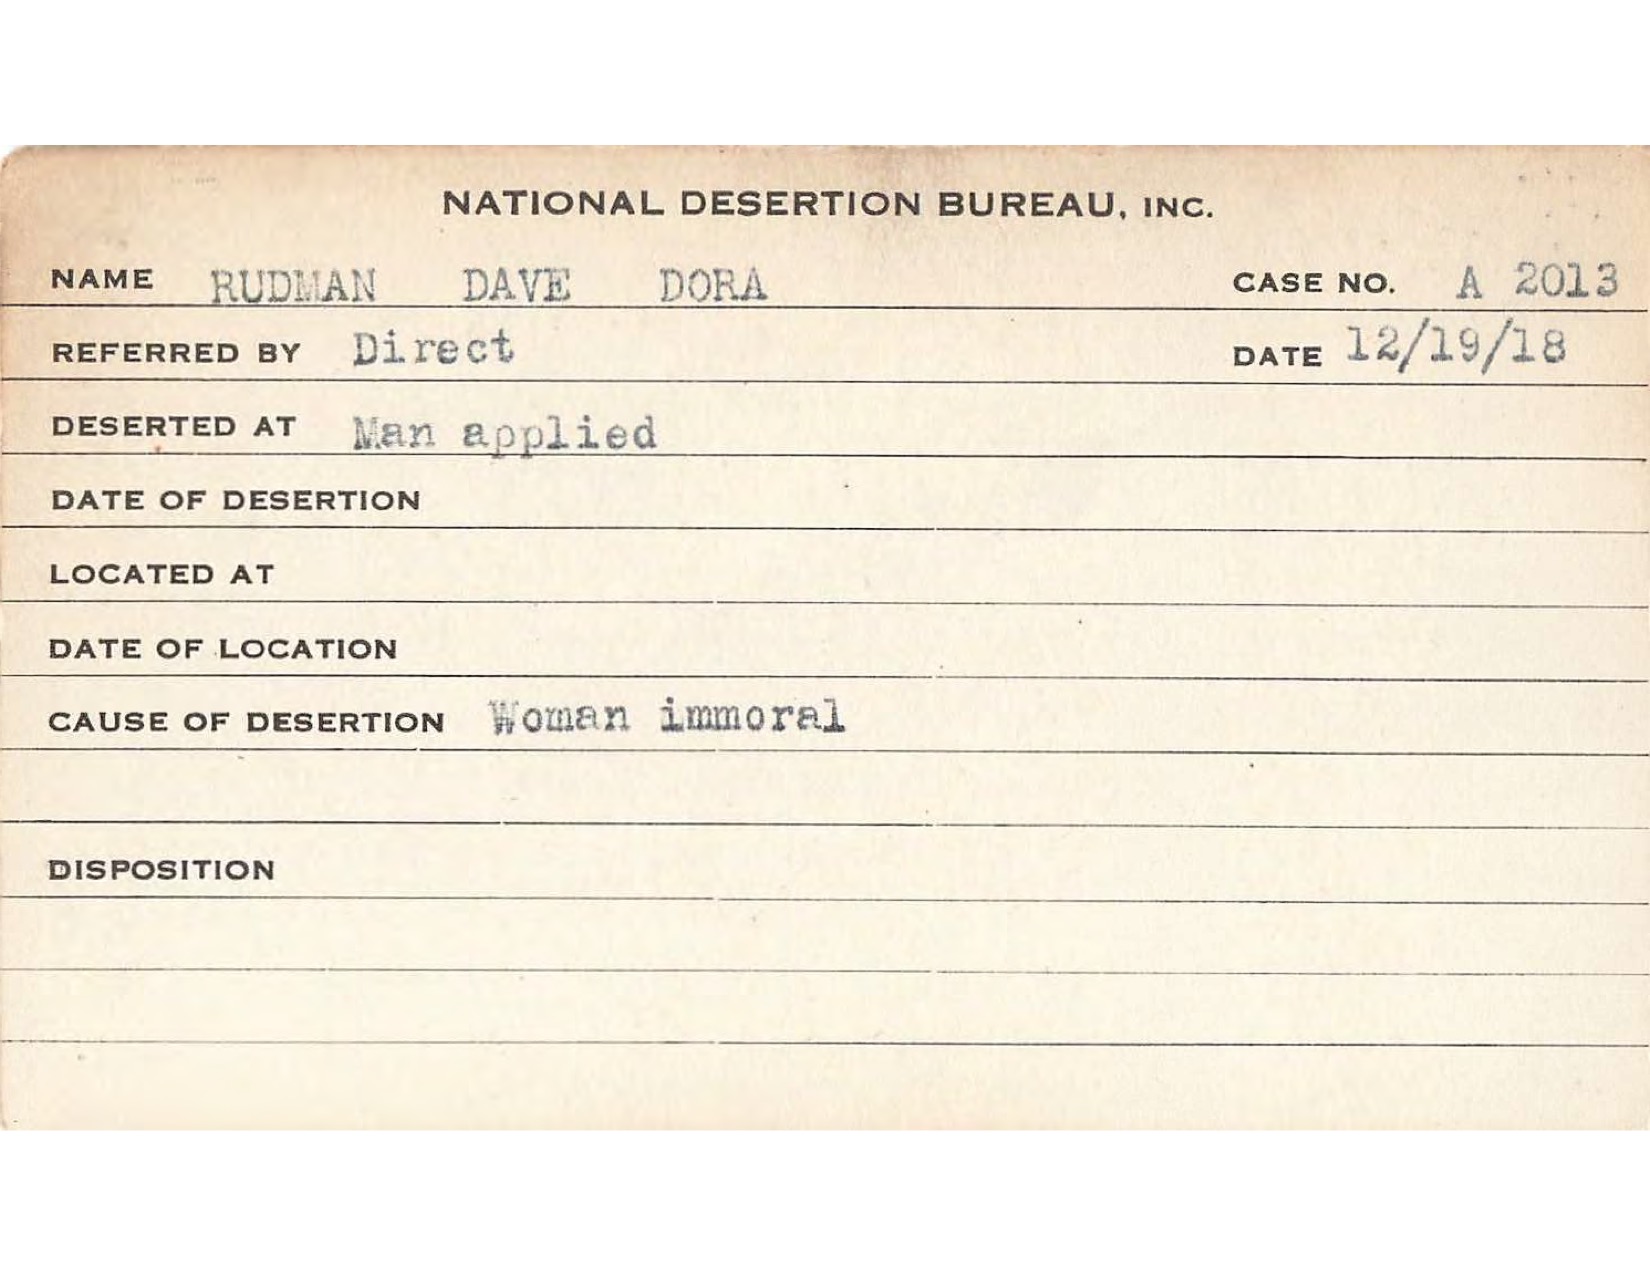 NATIONAL DESERTION BUREAU, INC.
NAME RUDMAN DAVE DORA CASE NO. A 2013
REFERRED BY Direct DATE 12/19/18
DESERTED AT Man applied
DATE OF DESERTION
LOCATED AT
DATE OF LOCATION
CAUSE OF DESERTION Woman immoral
DISPOSITION